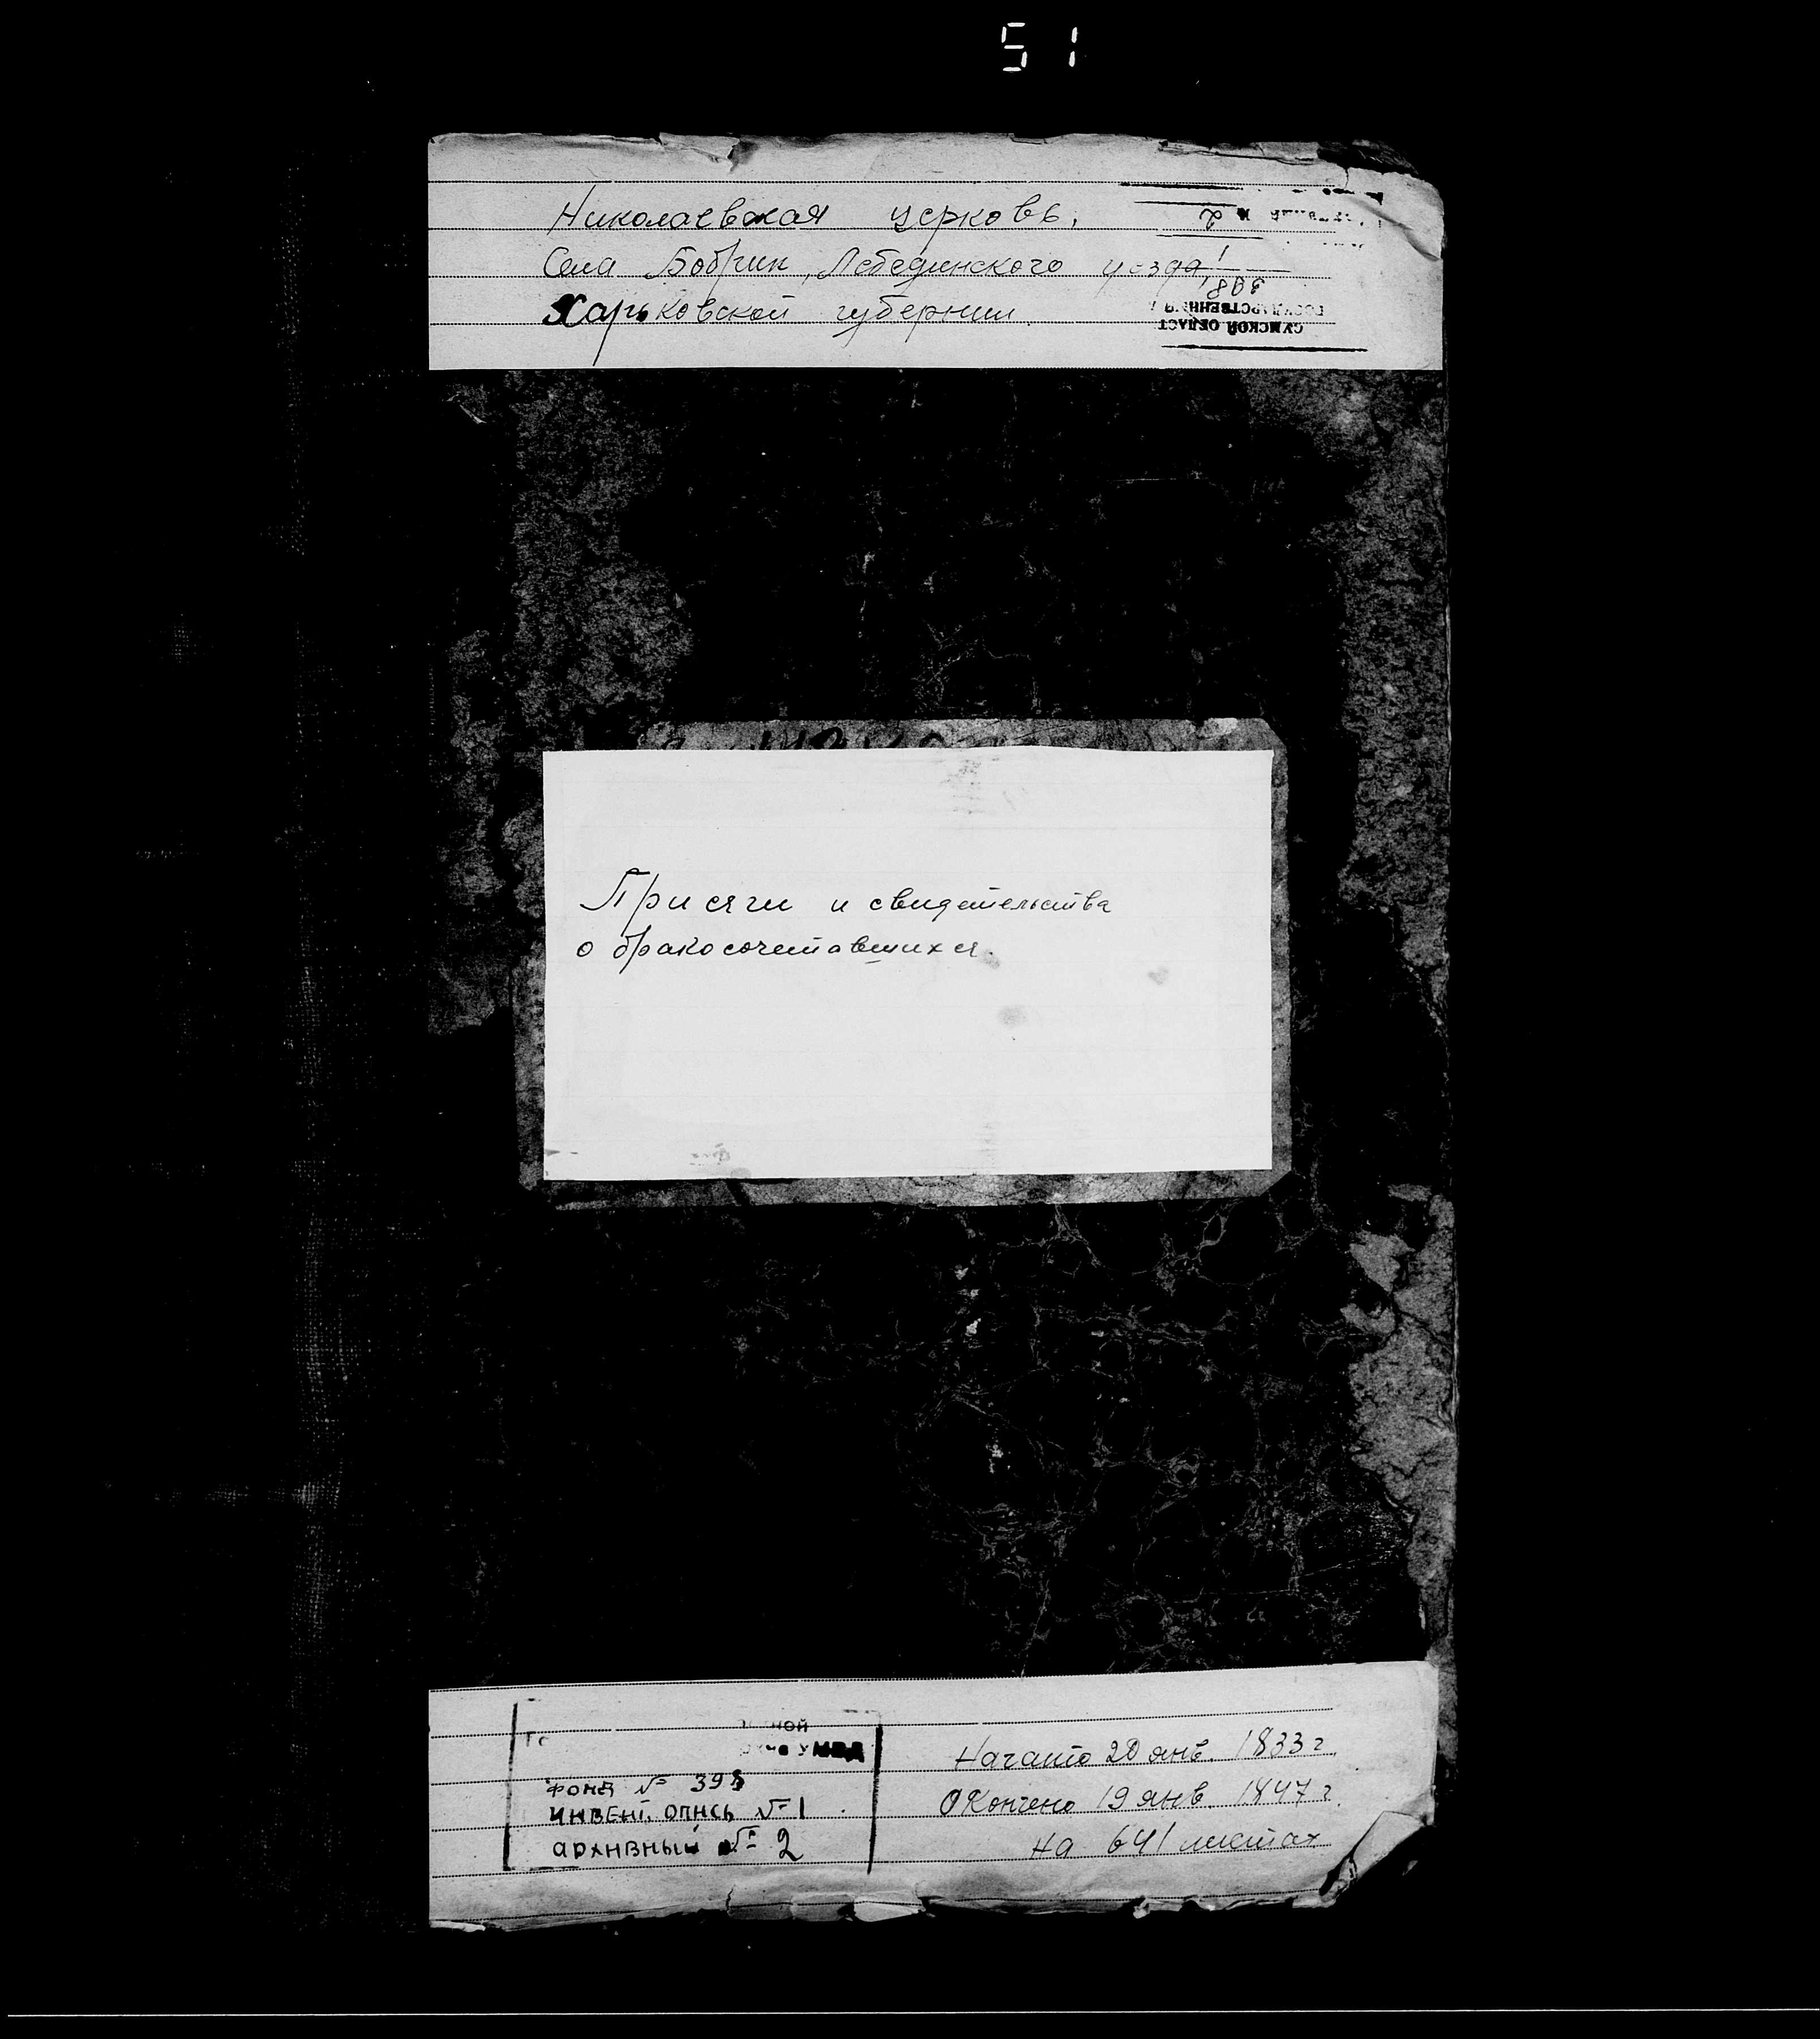 51
Николаевская церковь,
Села Бобрик, Лебединского уезда,
Харьковской губернии
2
1
398
ГОСУДАРСТВЕННЫЙ А
СУМСКОЙ ОБЛАСТ
Присяги и свидетельства
о бракосочетавшихся.
ной
УМВД
ФОНД № 398
ИНВЕНТ. ОПИСЬ № 1
АРХИВНЫЙ № 2
Начато 20 янв. 1833 г.
Окончено 19 янв. 1847 г.
на 641 листах